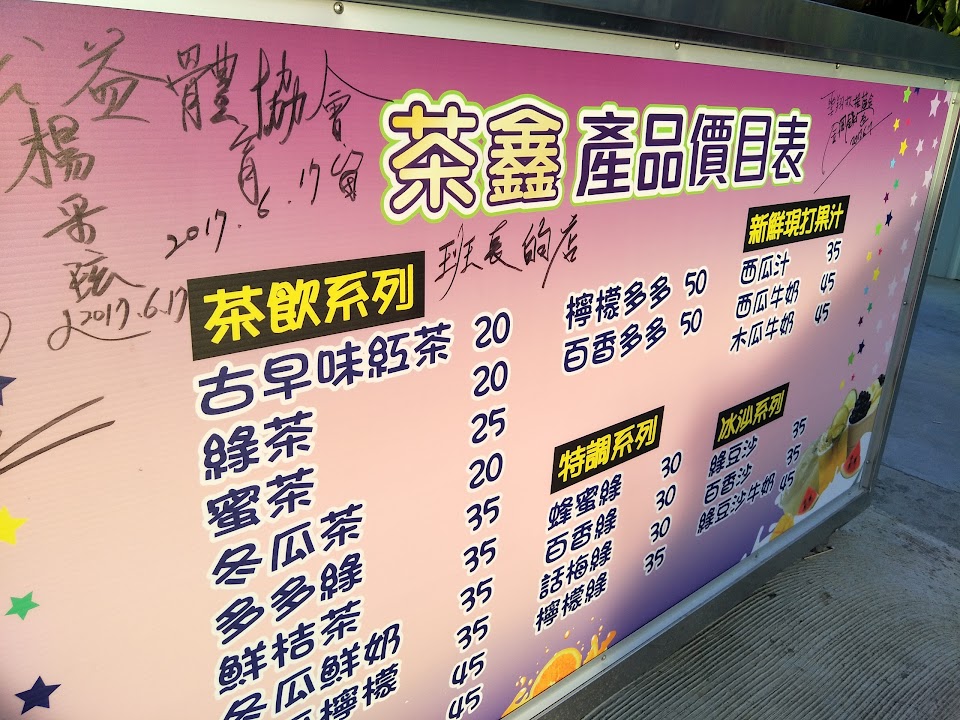 公益體育協會
楊
2017.6.17
2017.6.17
茶鑫 產品價目表
班長的店
茶飲系列
古早味紅茶 20
綠茶 20
蜜茶 25
冬瓜茶 20
多多綠 35
鮮桔茶 35
冬瓜鮮奶 35
檸檬 35
45
45
檸檬多多 50
百香多多 50
特調系列
蜂蜜綠 30
百香綠 30
話梅綠 30
檸檬綠 35
新鮮現打果汁
西瓜汁 35
西瓜牛奶 45
木瓜牛奶 45
冰沙系列
綠豆沙 35
百香沙 35
綠豆沙牛奶 45